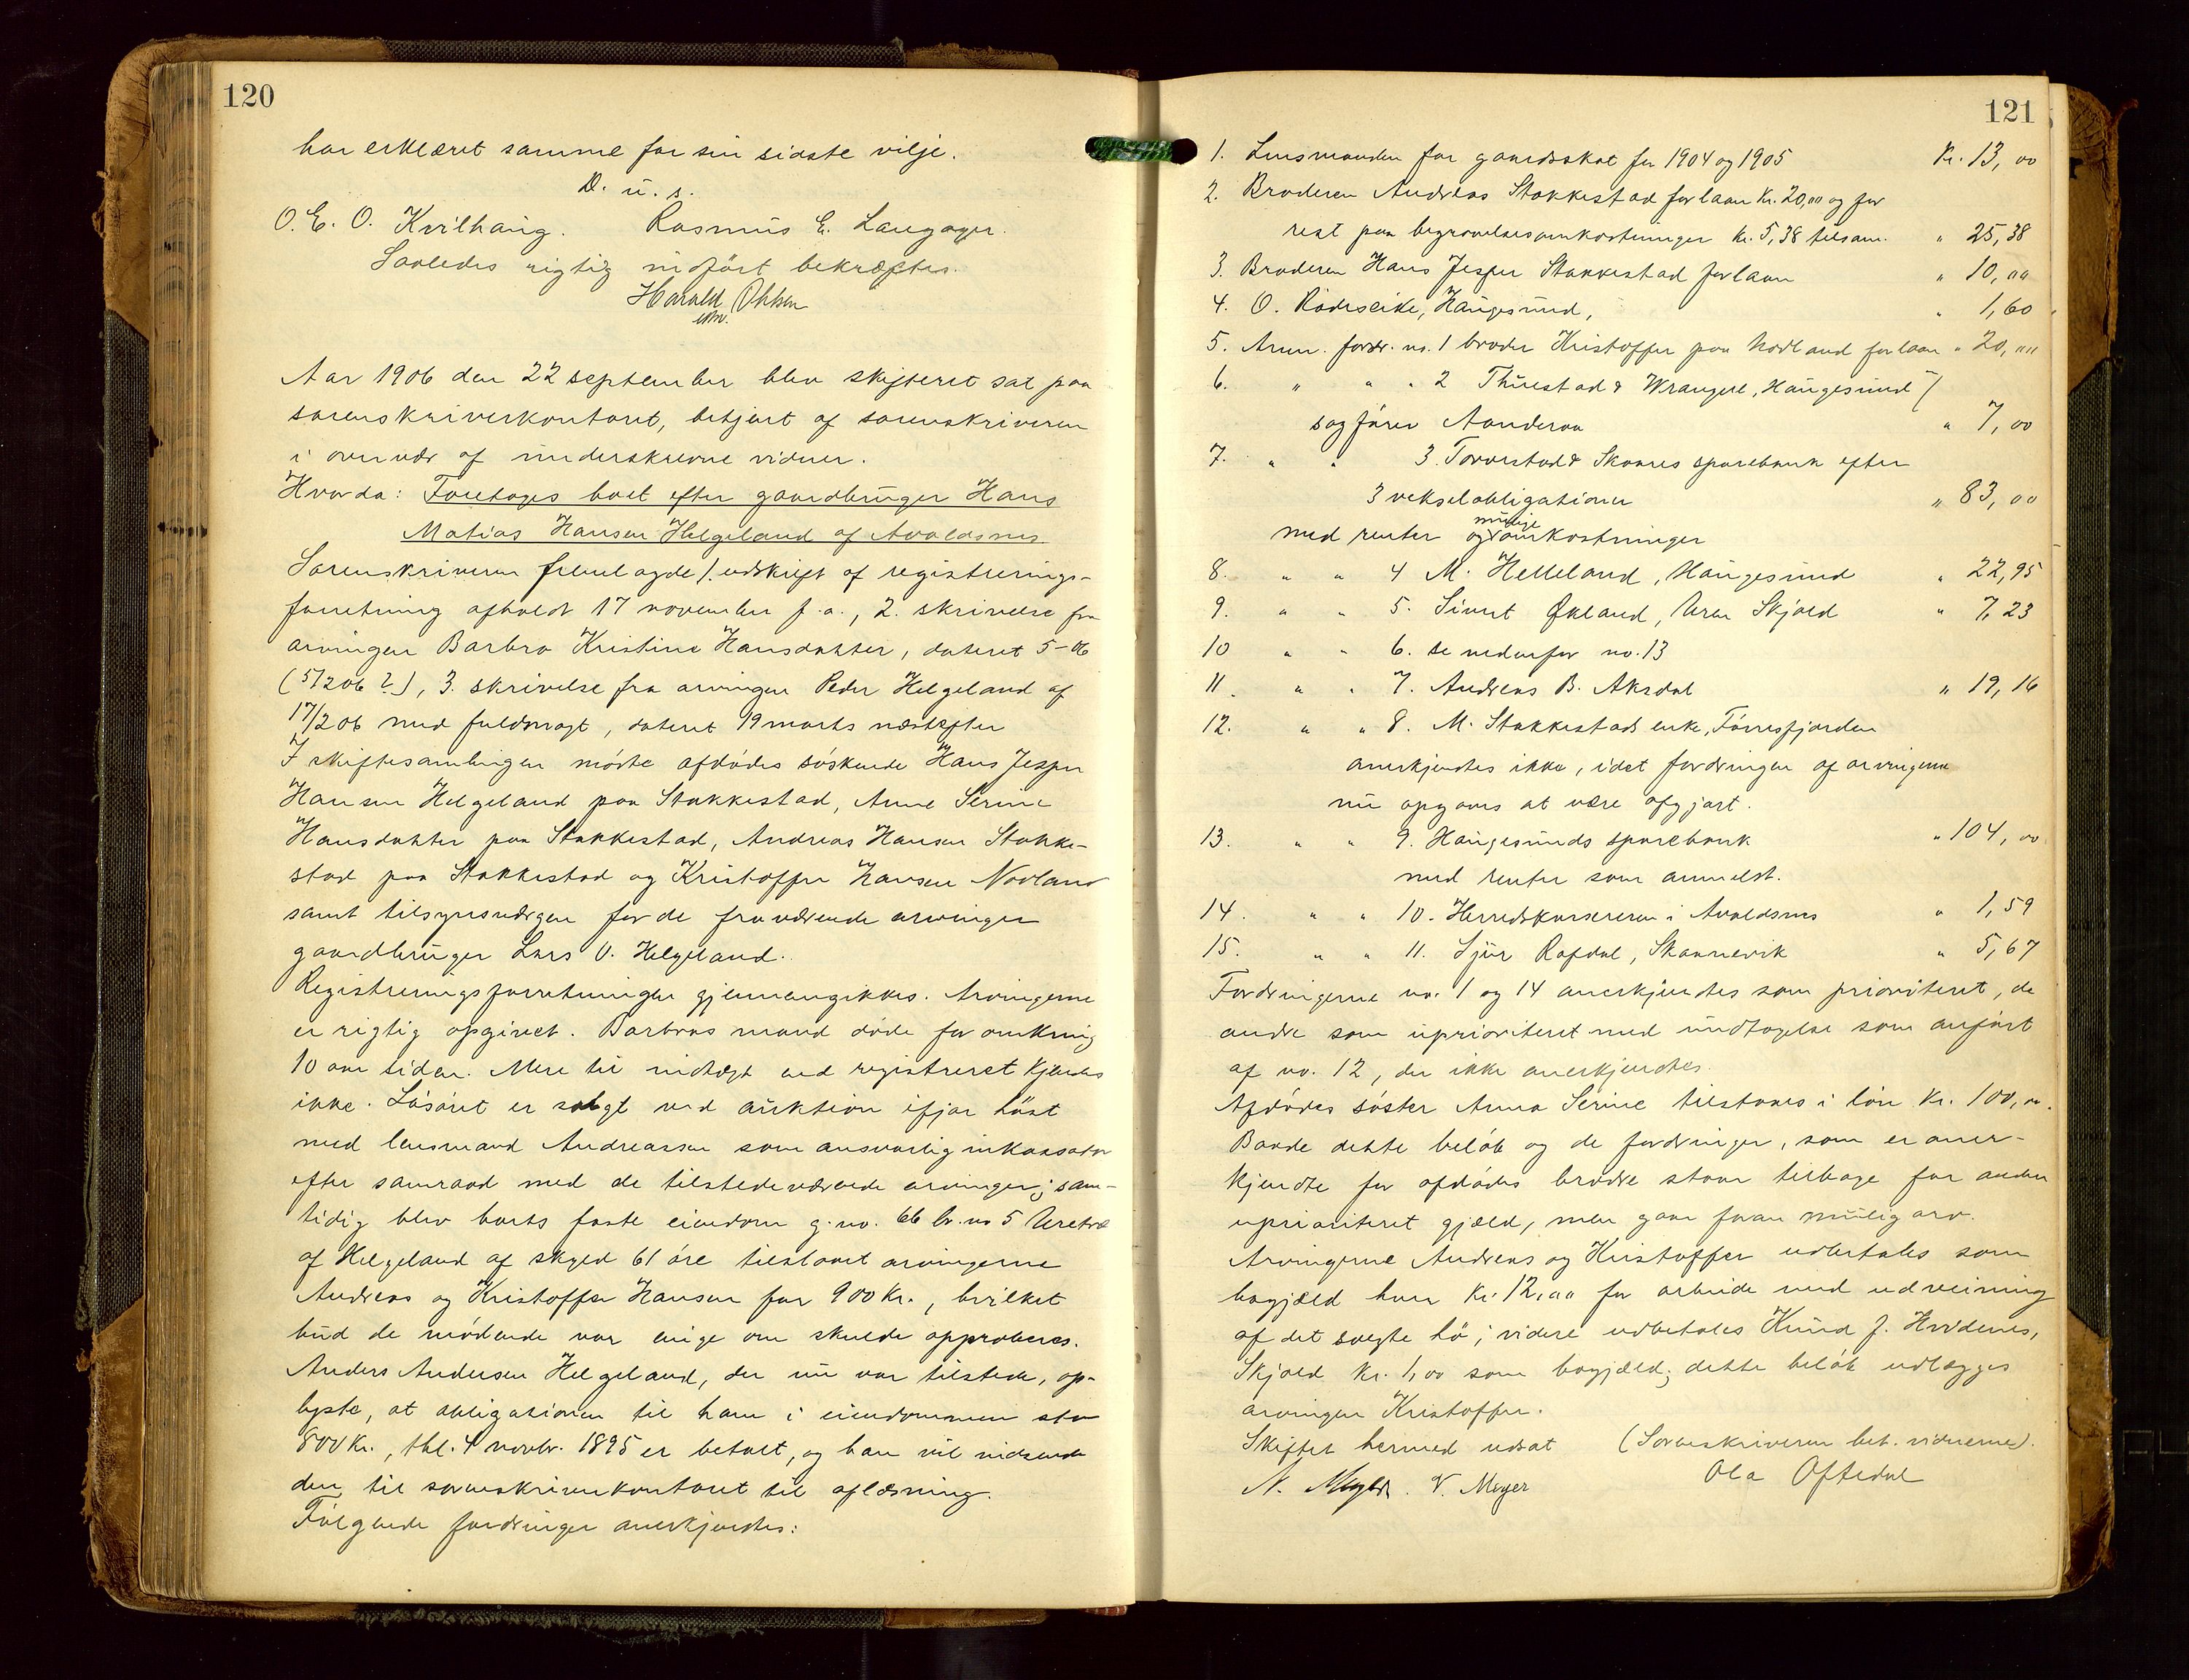 120
har erklæret samme for sin sidste vilje.
D. u. s.
O. E. O. Kvilhaug. Rasmus E. Langager.
Saaledes rigtig indført bekræftes.
Harald Ohlsen
Aar 1906 den 22 september blev skifteret sat paa
sorenskriverkontoret, betjent af sorenskriveren
i overvær af underskrevne vidner.
Hvorda: Foretoges boet efter gaardbruger Hans
Matias Hansen Helgeland af Avaldsnes.
Sorenskriveren fremlagde 1. udskrift af registrerings-
forretning afholdt 17 november f. a., 2. skrivelse fra
arvingen Barbro Kristine Hansdatter, dateret 5-06
(5/2 06 ?), 3. skrivelse fra arvingen Peder Helgeland af
17/2 06 med fuldmagt, dateret 19 marts næstefter
I skiftesamlingen mødte afdødes søskende Hans Jesper
Hansen Helgeland paa Stakkestad, Anne Serine
Hansdatter paa Stakkestad, Andreas Hansen Stakke-
stad paa Stakkestad og Kristoffer Hansen Norland
samt tilsynsværgen for de fraværende arvinger
gaardbruger Lars O. Helgeland.
Registreringsforretningen gjennemgikkes. Arvingerne
er rigtig opgivet. Barbros mand døde for omkring
10 aar siden. Mere til indtægt end registreret kjendes
ikke. Løsøret er solgt ved auktion ifjor høst
med lensmand Andreassen som ansvarlig inkassator
efter samraad med de tilstedeværende arvinger; sam-
tidig blev boets faste eiendom g. no. 66 br. no 5
af Helgeland af skyld 61 øre tilslaaet arvingerne
Andreas og Kristoffer Hansen for 900 kr., hvilket
bud de mødende var enige om skulde approberes.
Anders Andersen Helgeland, der nu var tilstede, op-
lyste, at obligationen til ham i eiendommen stor
800 kr., thl. 4 novbr. 1895 er betalt, og han vil indsende
den til sorenskriverkontoret til aflæsning.
Følgende fordringer anerkjendtes:
121
1. Lensmanden for gaardsskat for 1904 og 1905 Kr. 13,00
2. Broderen Andreas Stakkestad for laan kr. 20,00 og for
rest paa begravelsesomkostninger kr. 5,38 tilsam. " 25,38
3. Broderen Hans Jesper Stakkestad for laan " 10,00
4. O. Rødseike, Haugesund, " 1,60
5. Anm. fordr. no. 1 broder Kristoffer paa Norland for laan " 20,00
6. " " " 2 Thuestad & Wrangell, Haugesund /
sagfører Aanderaa " 7,00
7. " " 3. Torvestad & Skaares sparebank efter
3 vekselobligationer " 83,00
med renter og mulige omkostninger
8. " " 4 M. Helleland, Haugesund " 22,95
9. " " 5. Sivert Økland, Skjold " 7,23
10 " " 6. se nedenfor no. 13
11. " " 7. Andreas B. Aksdal " 19,16
12. " " 8. M. Stakkestads enke, Førresfjorden
anerkjendtes ikke, idet fordringen af arvingerne
nu opgaves at være afgjort.
13. " " 9. Haugesunds sparebank " 104,00
med renter som anmeldt.
14. " " 10. Herredskassereren i Avaldsnes " 1,59
15. " " 11. Sjur Rafdal, Skaanevik " 5,67
Fordringerne no. 1 og 14 anerkjendtes som prioriteret, de
andre som uprioriteret med undtagelse som anført
af no. 12, der ikke anerkjendtes.
Afdødes søster Anna Serine tilstaaes i løn kr. 100,00.
Baade dette beløb og de fordringer, som er aner-
kjendte for afdødes brødre staar tilbage for anden
uprioriteret gjæld, men gaar foran mulig arv.
Arvingerne Andreas og Kristoffer udbetales som
bogjæld hver kr. 12,00 for arbeide med udveining
af det solgte hø; videre udbetales Knud J.
Skjold kr. 1,00 som bogjæld; dette beløb udlægges
arvingen Kristoffer.
Skiftet hermed udsat (Sorenskriveren bet. vidnerne).
N. Meyer. V. Meyer Ola Oftedal